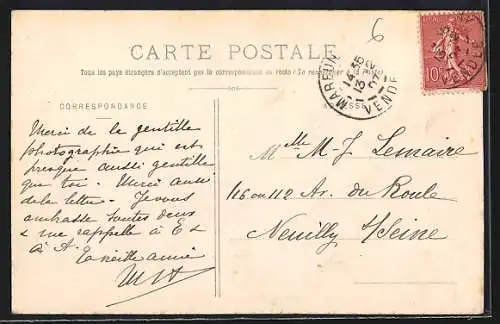 6
CARTE POSTALE
Tous les pays étrangers n'acceptent pas la correspondance au recto (Se renseigner à la poste)
MAREUIL
14 35
13
VENDÉE
10
CORRESPONDANCE
Merci de la gentille
photographie qui est
presque aussi gentille
que toi. Merci aussi
de la lettre. Je vous
embrasse toutes deux
& me rappelle à E &
à A. Ta vieille amie
Melle M. J. Lemaire
116 ou 112 Av. du Roule
Neuilly s/Seine